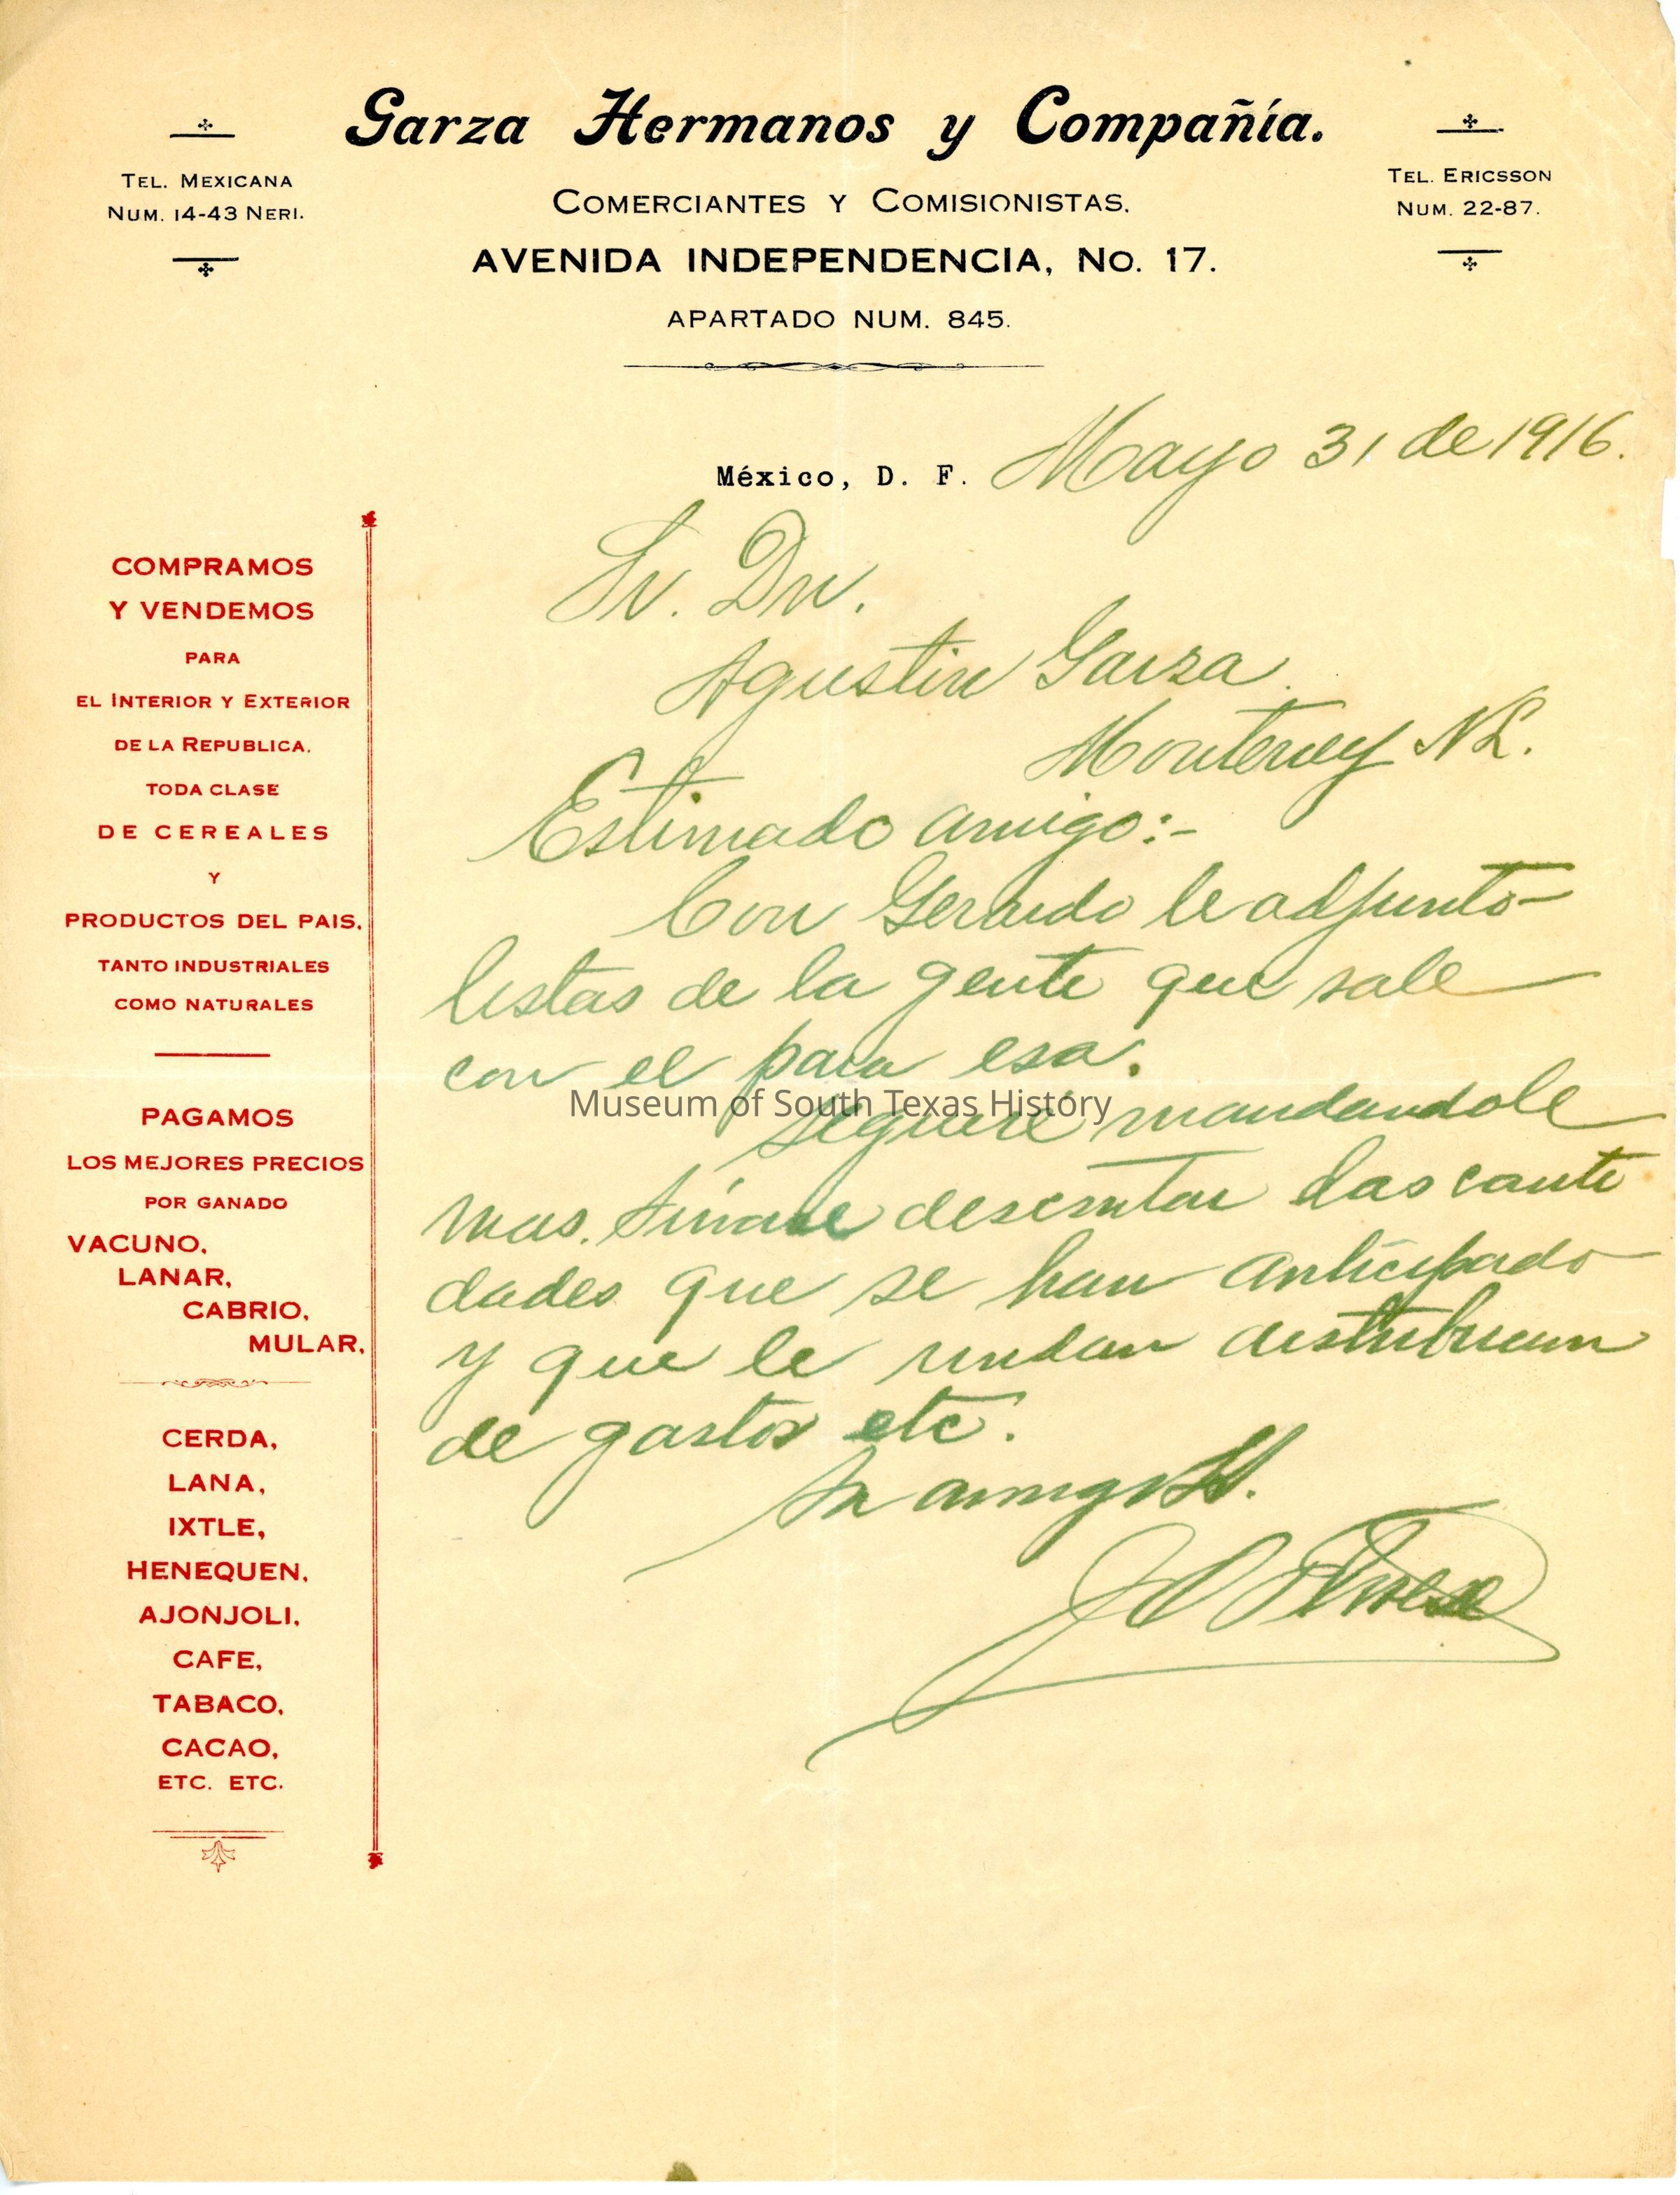 Garza Hermanos y Compañía.
TEL. MEXICANA
NUM. 14-43 NERI.
COMERCIANTES Y COMISIONISTAS.
TEL. ERICSSON
NUM. 22-87.
AVENIDA INDEPENDENCIA, No. 17.
APARTADO NUM. 845.
México, D. F. Mayo 31 de 1916.
Sr. Dn.
Agustin Garza
Monterrey N L.
Estimado amigo:-
Con Gerardo le adjunto
listas de la gente que sale
con el para esa.
Seguiré mandandole
mas. Sirvase descontar las canti
dades que se han anticipado
y que le rindan distribucion
de gastos etc.
Su amigo
COMPRAMOS
Y VENDEMOS
PARA
EL INTERIOR Y EXTERIOR
DE LA REPUBLICA,
TODA CLASE
DE CEREALES
Y
PRODUCTOS DEL PAIS,
TANTO INDUSTRIALES
COMO NATURALES
PAGAMOS
LOS MEJORES PRECIOS
POR GANADO
VACUNO,
LANAR,
CABRIO,
MULAR,
CERDA,
LANA,
IXTLE,
HENEQUEN,
AJONJOLI,
CAFE,
TABACO,
CACAO,
ETC. ETC.
Museum of South Texas History